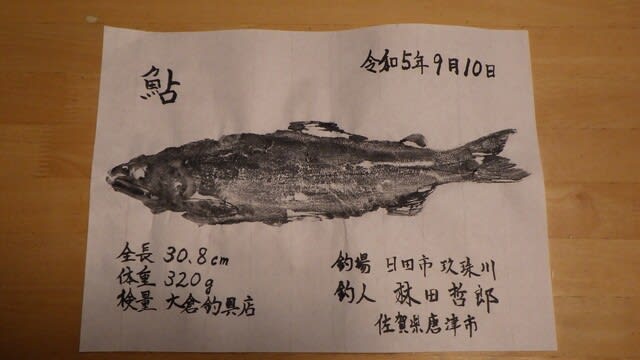 令和5年9月10日
鮎
全長 30.8cm
体重 320g
検量 大倉釣具店
釣場 日田市玖珠川
釣人 林田哲郎
佐賀県唐津市